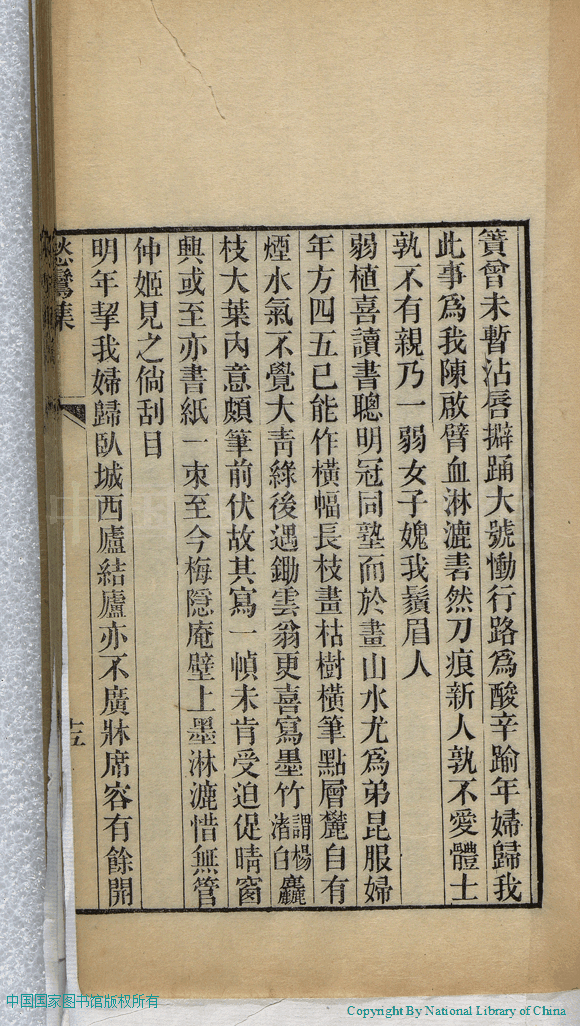 簀曾未暫沾唇擗踊大號慟行路為酸辛踰年婦歸我
此事為我陳啟臂血淋漉砉然刀痕新人孰不愛體士
孰不有親乃一弱女子媿我鬚眉人
弱植喜讀書聰明冠同塾而於畫山水尤為弟昆服婦
年方四五已能作橫幅長枝畫枯樹橫筆點層麓自有
煙水氣不覺大青綠後遇鋤雲翁更喜寫墨竹謂楊渚白麤
枝大葉內意頗筆前伏故其寫一幀未肯受迫促晴窗
興或至亦書紙一束至今梅隱庵壁上墨淋漉惜無管
仲姬見之倘刮目
明年挈我婦歸臥城西廬結廬亦不廣牀席容有餘開
愁鸞集
十五
中国国家图书馆版权所有
Copyright By National Library of China